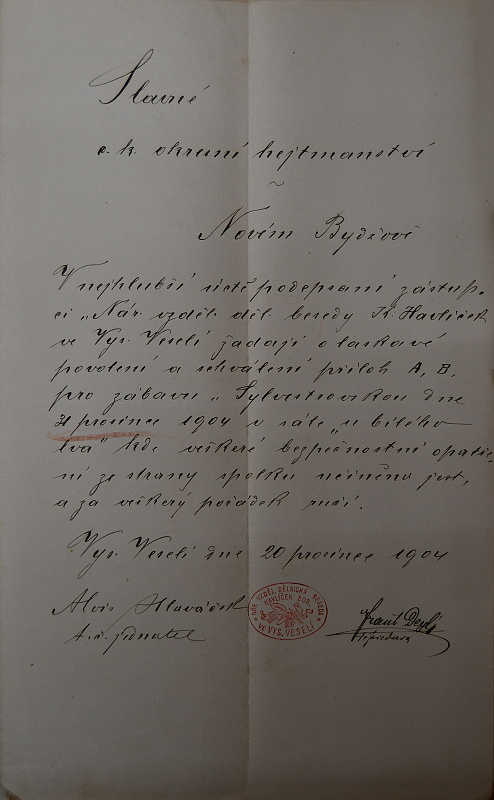 Slavné
c. k. okresní hejtmanství
v
Novém Bydžově
V nejhlubší úctě podepsaní zástup-
ci „Nár. vzděl. děl. besedy K. Havlíček
ve Vys. Veselí žadají o laskavé
povolení a schválení příloh A, B,
pro zábavu „Sylvestrovskou dne
31 prosince 1904 v sále „u bílého
lva" kde veškeré bezpečnostní opatře-
ní ze strany spolku učiněno jest,
a za veškerý pořádek ručí.
Vys. Veselí dne 20 prosince 1904
Alois Hlaváček
t. č. jednatel
NÁR. VZDĚL. DĚLNICKÁ BESEDA
HAVLÍČEK BOR.
VE VYS. VESELÍ
Frant